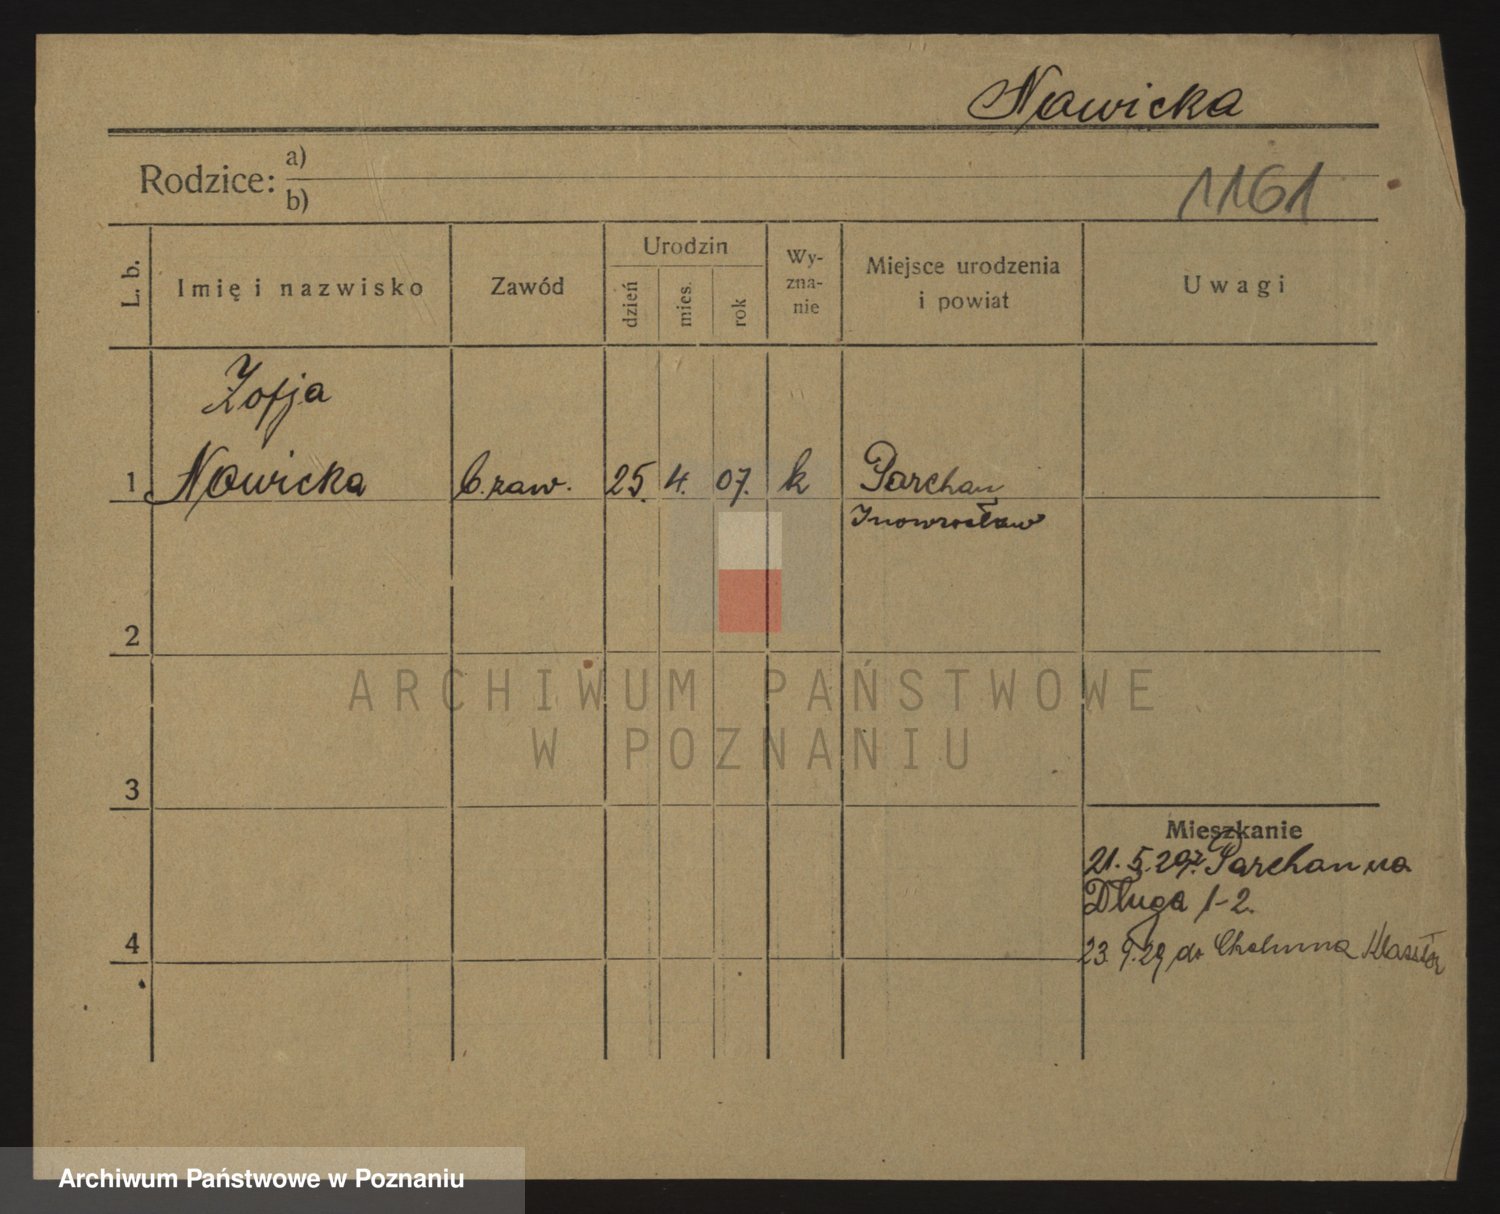 Nowicka
Rodzice: a)
b)
1161
L. b.
Imię i nazwisko
Zawód
Urodzin
dzień
mies.
rok
Wy-
zna-
nie
Miejsce urodzenia
i powiat
Uwagi
Zofja
1 Nowicka b. zaw. 25. 4. 07. k Parchan
Inowrocław
2
ARCHIWUM PAŃSTWOWE
W POZNANIU
3
Mieszkanie
21. 5. 29 z Parchanna
Długa 1-2.
4
23. 9. 29 do Chełmna Klasztor
Archiwum Państwowe w Poznaniu